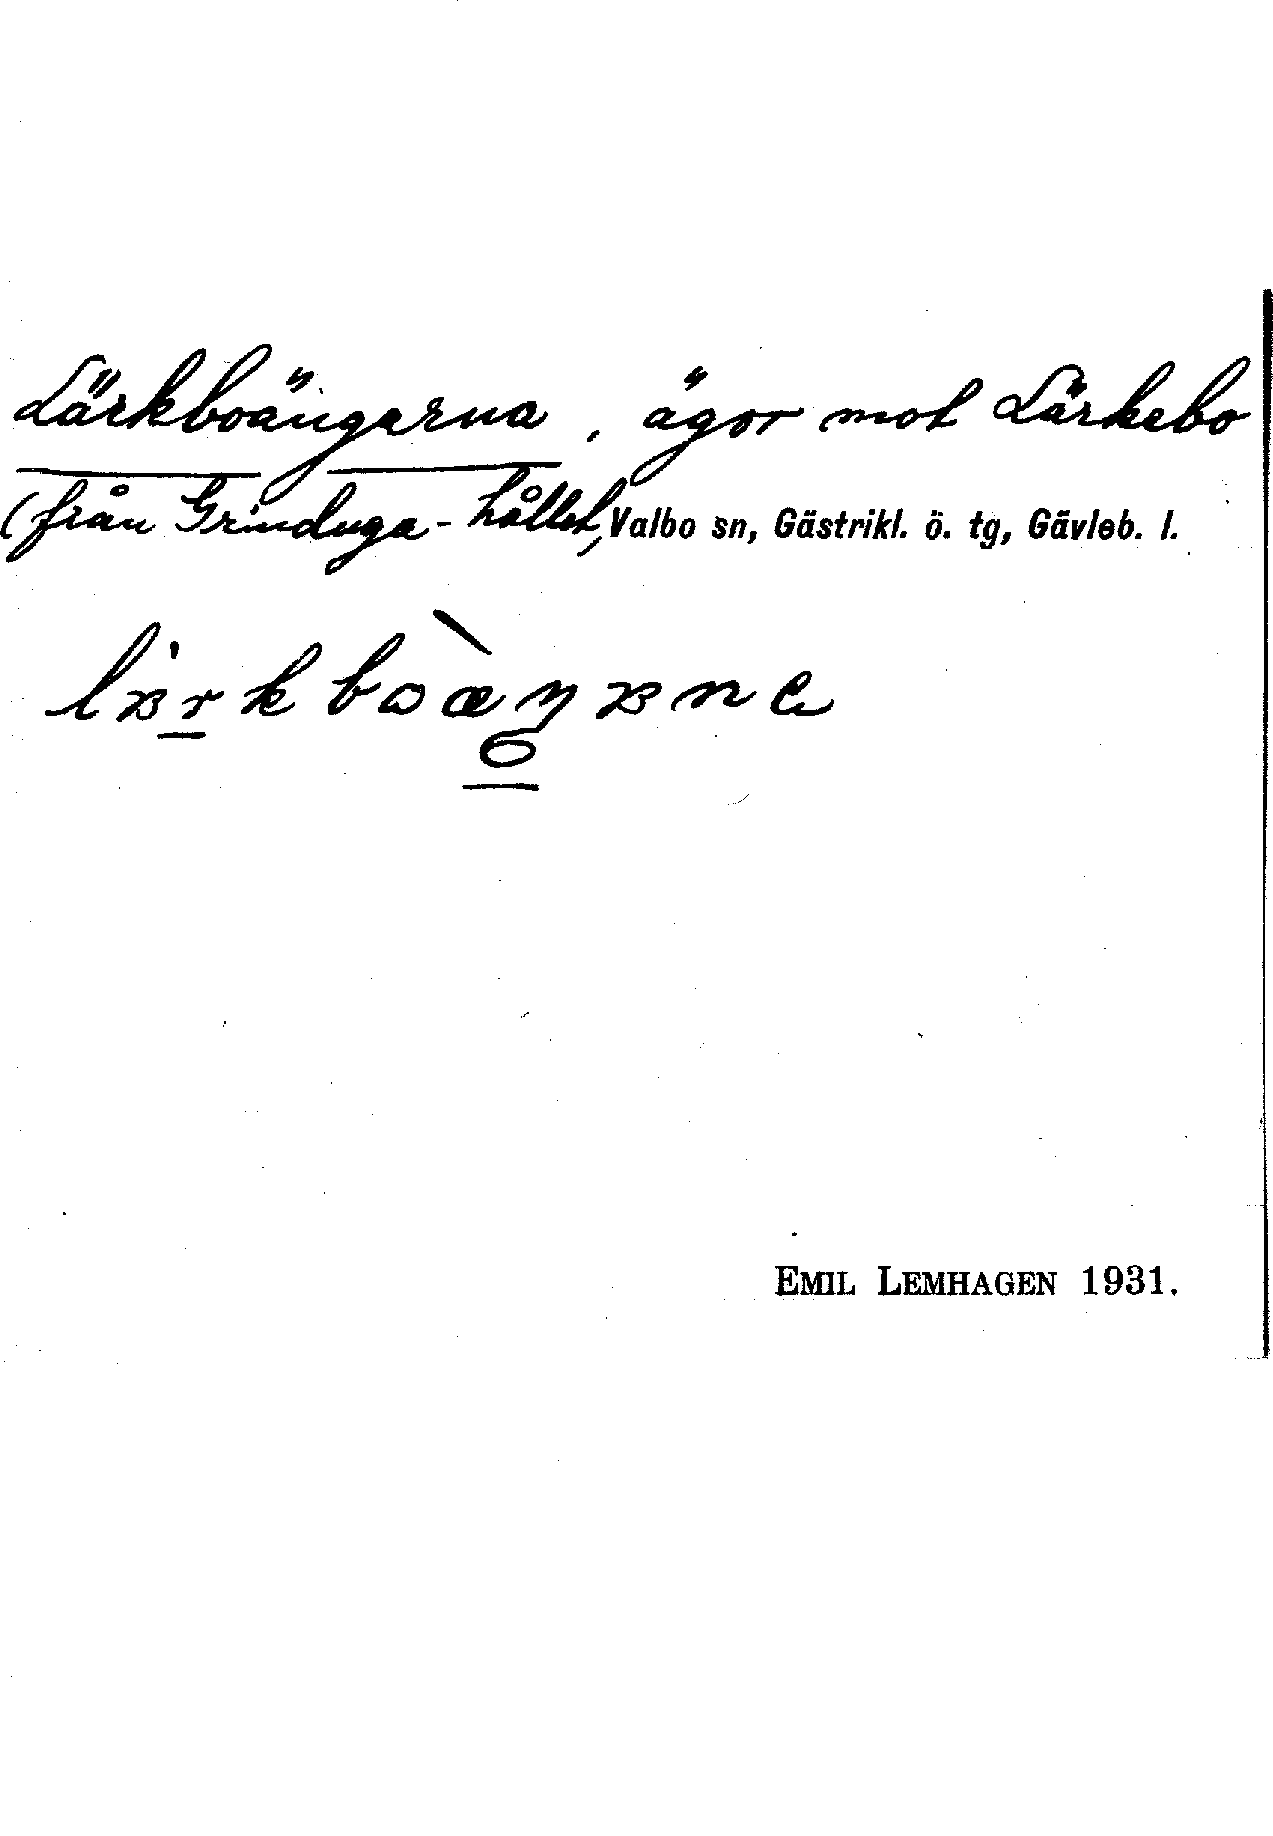 Lärkboängarna, ägor mot Lärkebo
(från Grinduga-hållet, Valbo sn, Gästrikl. ö. tg, Gävleb. l.
EMIL LEMHAGEN 1931.